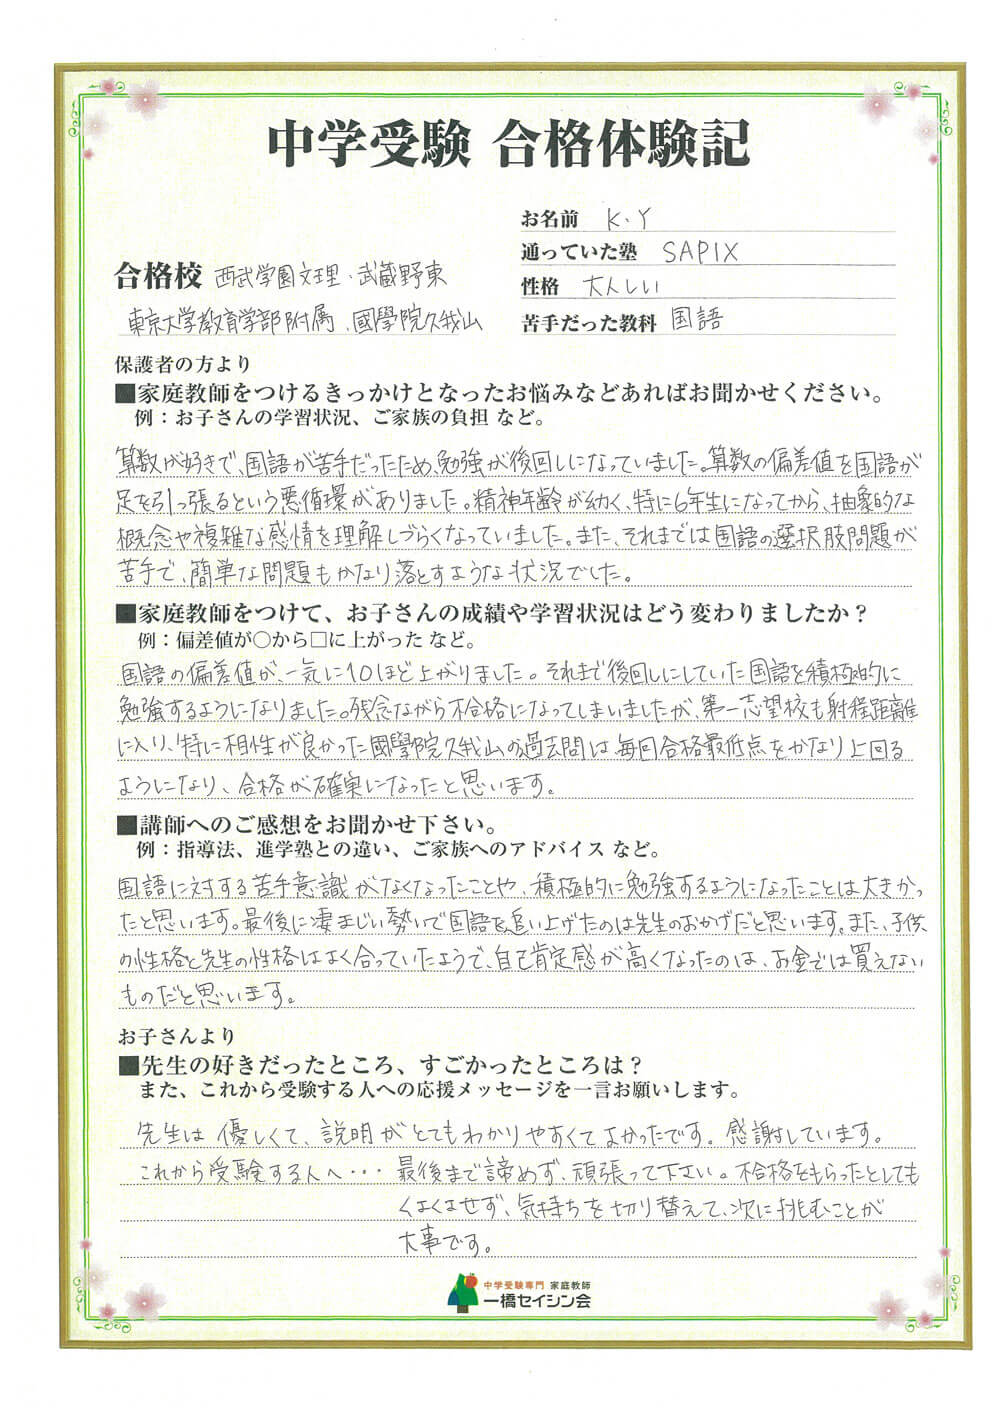 中学受験 合格体験記
お名前 K・Y
通っていた塾 SAPIX
合格校 西武学園文理・武蔵野東
性格 大人しい
東京大学教育学部附属、國學院久我山
苦手だった教科 国語
保護者の方より
■家庭教師をつけるきっかけとなったお悩みなどあればお聞かせください。
例：お子さんの学習状況、ご家族の負担 など。
算数が好きで、国語が苦手だったため、勉強が後回しになっていました。算数の偏差値を国語が
足を引っ張るという悪循環がありました。精神年齢が幼く、特に6年生になってから、抽象的な
概念や複雑な感情を理解しづらくなっていました。また、それまでは国語の選択肢問題が
苦手で、簡単な問題もかなり落とすような状況でした。
■家庭教師をつけて、お子さんの成績や学習状況はどう変わりましたか？
例：偏差値が○から□に上がった など。
国語の偏差値が、一気に10ほど上がりました。それまで後回しにしていた国語を積極的に
勉強するようになりました。残念ながら不合格になってしまいましたが、第一志望校も射程距離
に入り、特に相性が良かった國學院久我山の過去問は毎回合格最低点をかなり上回る
ようになり、合格が確実になったと思います。
■講師へのご感想をお聞かせ下さい。
例：指導法、進学塾との違い、ご家族へのアドバイス など。
国語に対する苦手意識がなくなったことや、積極的に勉強するようになったことは大きかっ
たと思います。最後に凄まじい勢いで国語を追い上げたのは先生のおかげだと思います。また、子供
の性格と先生の性格はよく合っていたようで、自己肯定感が高くなったのは、お金では買えない
ものだと思います。
お子さんより
■先生の好きだったところ、すごかったところは？
また、これから受験する人への応援メッセージを一言お願いします。
先生は優しくて、説明がとてもわかりやすくてよかったです。感謝しています。
これから受験する人へ・・・最後まで諦めず、頑張って下さい。不合格をもらったとしても
くよくよせず、気持ちを切り替えて、次に挑むことが
大事です。
中学受験専門 家庭教師
一橋セイシン会